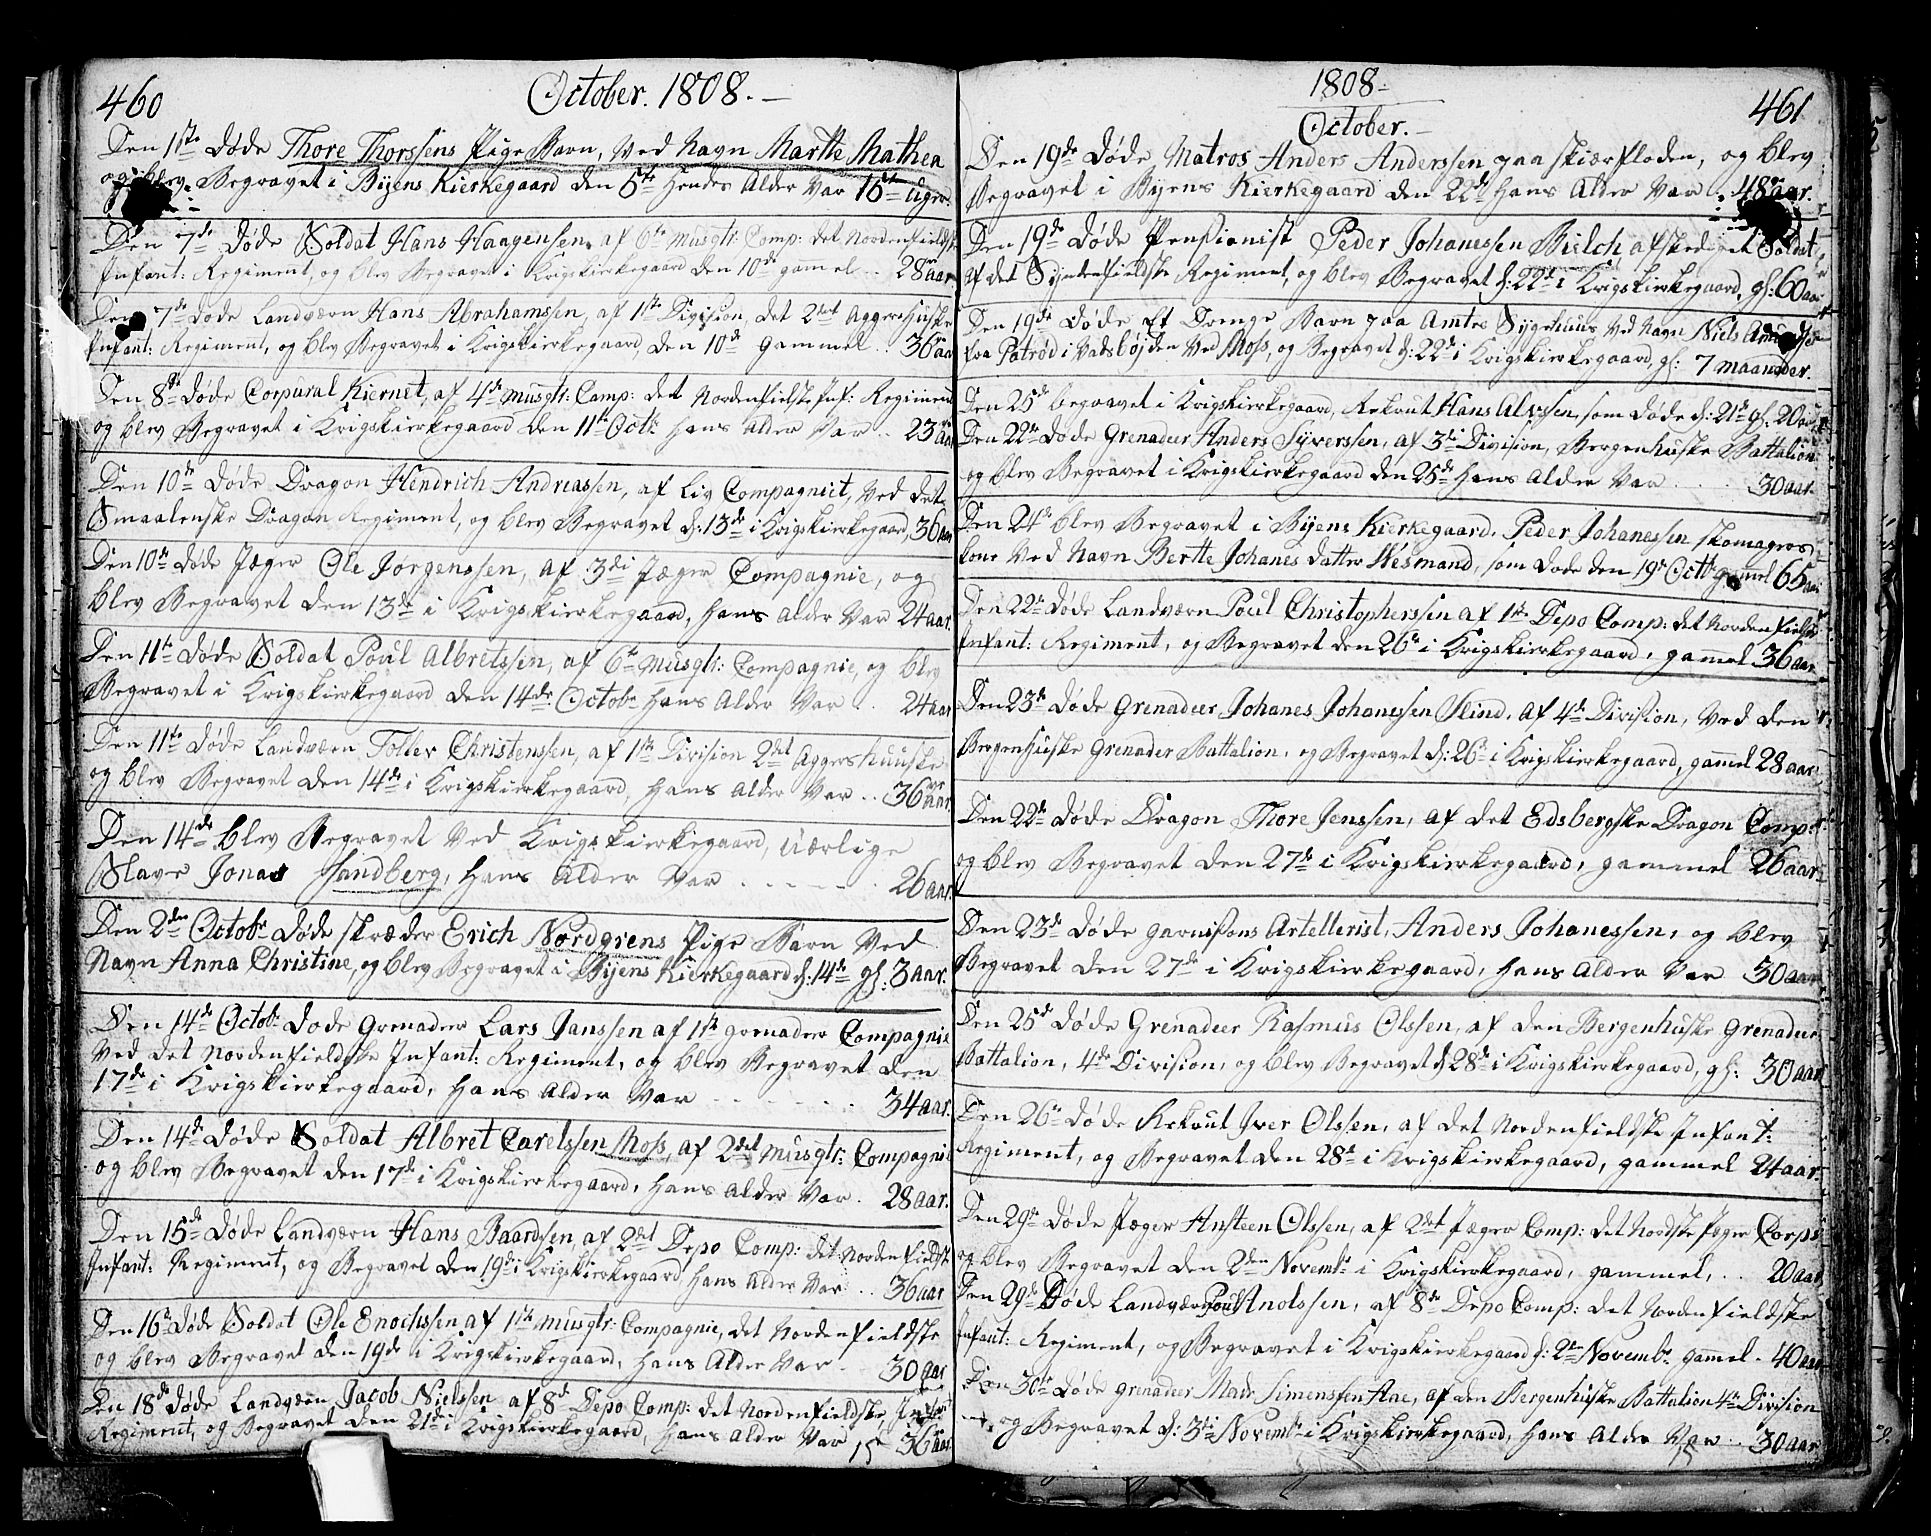 460
October. 1808.
Den 1ste døde Thore Thorssens Pige Barn, ved Navn Marthe Mathea
og blev Begravet i Byens Kierkegaard den 5te hendes Alder var 16 Uger.
Den 7de døde Soldat Hans Haagensen, af 6te Musqtr: Comp: det Nordenfieldske
Infant: Regiment, og blev Begravet i Krigskierkegaard den 10de gamel .. 28 aar
Den 7de døde Landværn Hans Abrahamssen, af 1ste Division, det 2det Aggershuuske
Infant: Regiment, og blev Begravet i Krigskierkegaard, den 10de gammel .. 36 aar
Den 8de døde Corpural Kiernet, af 4de Musqtr: Comp: det Nordenfielske Inf: Regiment
og blev Begravet i Krigskierkegaard den 11te Octbr hans Alder Var .. 23 aar
Den 10de døde Dragon Hendrich Andreassen, af Liv Compagniet, ved det
Smaalenske Dragon Regiment, og blev Begravet d: 13de i Krigskierkegaard, 36 aar
Den 10de døde Jæger Ole Jørgenssen, af 3die Jæger Compagnie, og
blev Begravet den 13de i Krigskierkegaard, hans Alder Var 24 aar.
Den 11te døde Soldat Poul Albretssen, af 6te Musqtr: Compagnie, og blev
Begravet i Krigskierkegaard den 14de Octobr hans Alder Var .. 24 aar
Den 11te døde Landværn Toller Christenssen, af 1ste Division 2det Aggershuuske
og blev Begravet den 14de i Krigskierkegaard, hans Alder Var .. 36 aar.
Den 14de blev Begravet ved Krigskierkegaard, Uærlige
Slave Jonas Sandberg, hans Alder Var . . . . . 26 aar.
Den 2den Octobr døde skræder Erich Nordgrens Pige Barn ved
Navn Anna Christine, og blev Begravet i Byens Kierkegaard d: 14de gl: 3 aar.
Den 14de Octobr døde Grenader Lars Janssen af 1ste Grenader Compagnie
ved det Nordenfieldske Infant: Regiment, og blev Begravet den
17de i Krigskierkegaard, hans Alder Var . . . . . 34 aar.
Den 14de døde Soldat Albret Carelssen Moss, af 2det Musqtr: Compagnie
og blev Begravet den 17de i Krigskierkegaard, hans Alder Var . 28 aar.
Den 15de døde Landværn Hans Baardsen, af 2det Depo Comp: det Nordenfieldske
Infant: Regiment, og Begravet den 19de i Krigskierkegaard, hans Alder Var .. 36 aar
Den 16de døde Soldat Ole Enochssen af 1ste Musqtr: Compagnie, det Nordenfieldske
og blev Begravet den 19de i Krigskierkegaard, hans Alder Var . 30 aar
Den 18de døde Landværn Jacob Nielssen af 8de Depo Comp: det Nordenfieldske Infant:
Regiment, og Begravet den 21de i Krigskierkegaard, hans Alder Var 36 aar
15
1808
461
October.
Den 19de døde Matros Anders Anderssen paa Skiærfloden, og blev
Begravet i Byens Kierkegaard den 22de hans Alder Var . 48 aar.
Den 19de døde Pensionist Peder Johanessen Bielch afskediget Soldat
af det Syndenfieldske Regiment, og blev Begravet d: 22de i Krigskierkegaard, gl: 60 aar
Den 19de døde et Drenge Barn paa Amtes Sygehuus ved Navn Niels
fra Patrød i Vadsbøjden ved Moss, og Begravet d: 22de i Krigskierkegaard, gl: 7 Maaneder.
Den 25de begravet i Krigskierkegaard, Rekrut Hans Alvssen, som døde d: 21de gl. 20 aar
Den 22de døde Grenadeer Anders Syverssen, af 3die Division, Bergenhuske Battalion
og blev Begravet i Krigskierkegaard den 25de hans Alder Var . . . 30 aar.
Den 24de blev Begravet i Byens Kierkegaard, Peder Johanessen skomagers
kone ved Navn Berthe Johanes datter Wesmand, som døde den 19de Octbr gamel 65 aar
Den 22de døde Landværn Poul Christopherssen af 1ste Depo Comp: det Nordenfieldske
Infant: Regiment, og Begravet den 26de i Krigskierkegaard, gammel 36 aar
Den 23de døde Grenadeer Johanes Johanessen Slind, af 4de Division, ved den
Bergenhuske Grenader Battalion, og Begravet d: 26de i Krigskierkegaard, gammel 28 aar
Den 22de døde Dragon Thore Jenssen, af det Edsbergske Dragon Comp:
og blev Begravet den 27de i Krigskierkegaard, gammel 26 aar.
Den 23de døde Garnisons Artellerist, Anders Johanessen, og blev
Begravet den 27de i Krigskierkegaard, hans Alder Var 50 aar
Den 25de døde Grenadeer Rasmus Olssen, af den Bergenhuske Grenadeer
Battalion, 4de Division, og blev Begravet d 28de i Krigskierkegaard, gl: 30 aar
Den 26de døde Rekrut Iver Olssen, af det Nordenfieldske Infant:
Regiment, og Begravet den 28de i Krigskierkegaard, gammel 24 aar.
Den 29de døde Jæger Ansteen Olssen, af 2det Jæger Comp: det Nordske Jæger Corps
og blev Begravet den 2den Novembr i Krigskierkegaard, gammel, .. 20 aar
Den 29de Døde Landværn Poul Knolssen, af 8de Depo Comp: det Nordenfieldske
Infant: Regiment, og Begravet i Krigskierkegaard d: 2den Novembr gammel . 40 aar
Den 30te døde Grenadeer Mads Simenssen Aae, af den Bergenhuske Battalion 4de Division
og Begravet d: 3die Novembr i Krigskierkegaard, hans Alder Var .. 30 aar
15